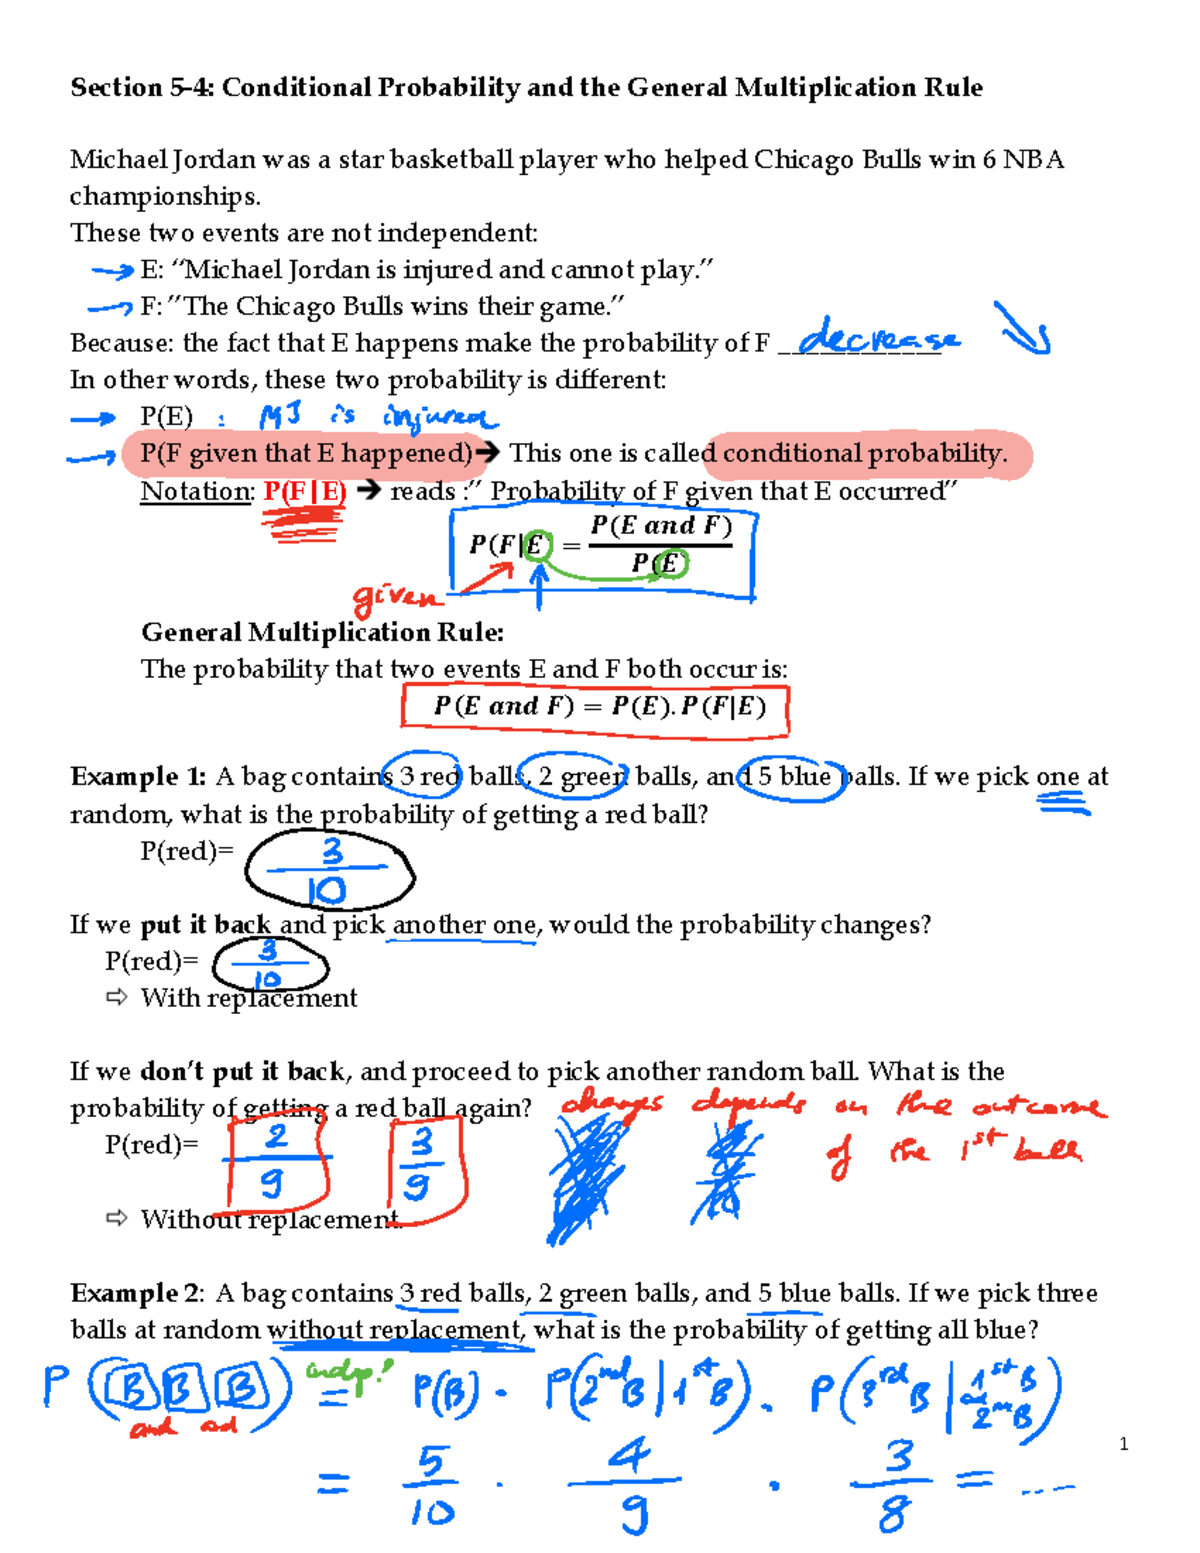 Section 5-4: Conditional Probability and the General Multiplication Rule
Michael Jordan was a star basketball player who helped Chicago Bulls win 6 NBA
championships.
These two events are not independent:
→ E: “Michael Jordan is injured and cannot play.”
→ F: ”The Chicago Bulls wins their game.”
Because: the fact that E happens make the probability of F decrease
In other words, these two probability is different:
→ P(E) : MJ is injured
→ P(F given that E happened)➔ This one is called conditional probability.
Notation: P(F|E) ➔ reads :” Probability of F given that E occurred”
P(F|E) = P(E and F) / P(E)
given
General Multiplication Rule:
The probability that two events E and F both occur is:
P(E and F) = P(E). P(F|E)
Example 1: A bag contains 3 red balls, 2 green balls, and 5 blue balls. If we pick one at
random, what is the probability of getting a red ball?
P(red)= 3/10
If we put it back and pick another one, would the probability changes?
P(red)= 3/10
⇨ With replacement
If we don’t put it back, and proceed to pick another random ball. What is the
probability of getting a red ball again? changes depends on the outcome
P(red)= 2/9 3/9 of the 1st ball
⇨ Without replacement.
Example 2: A bag contains 3 red balls, 2 green balls, and 5 blue balls. If we pick three
balls at random without replacement, what is the probability of getting all blue?
P(B B B) indep! = P(B) · P(2nd B | 1st B) · P(3rd B | 1st B and 2nd B)
and and
= 5/10 · 4/9 · 3/8 = ...
1